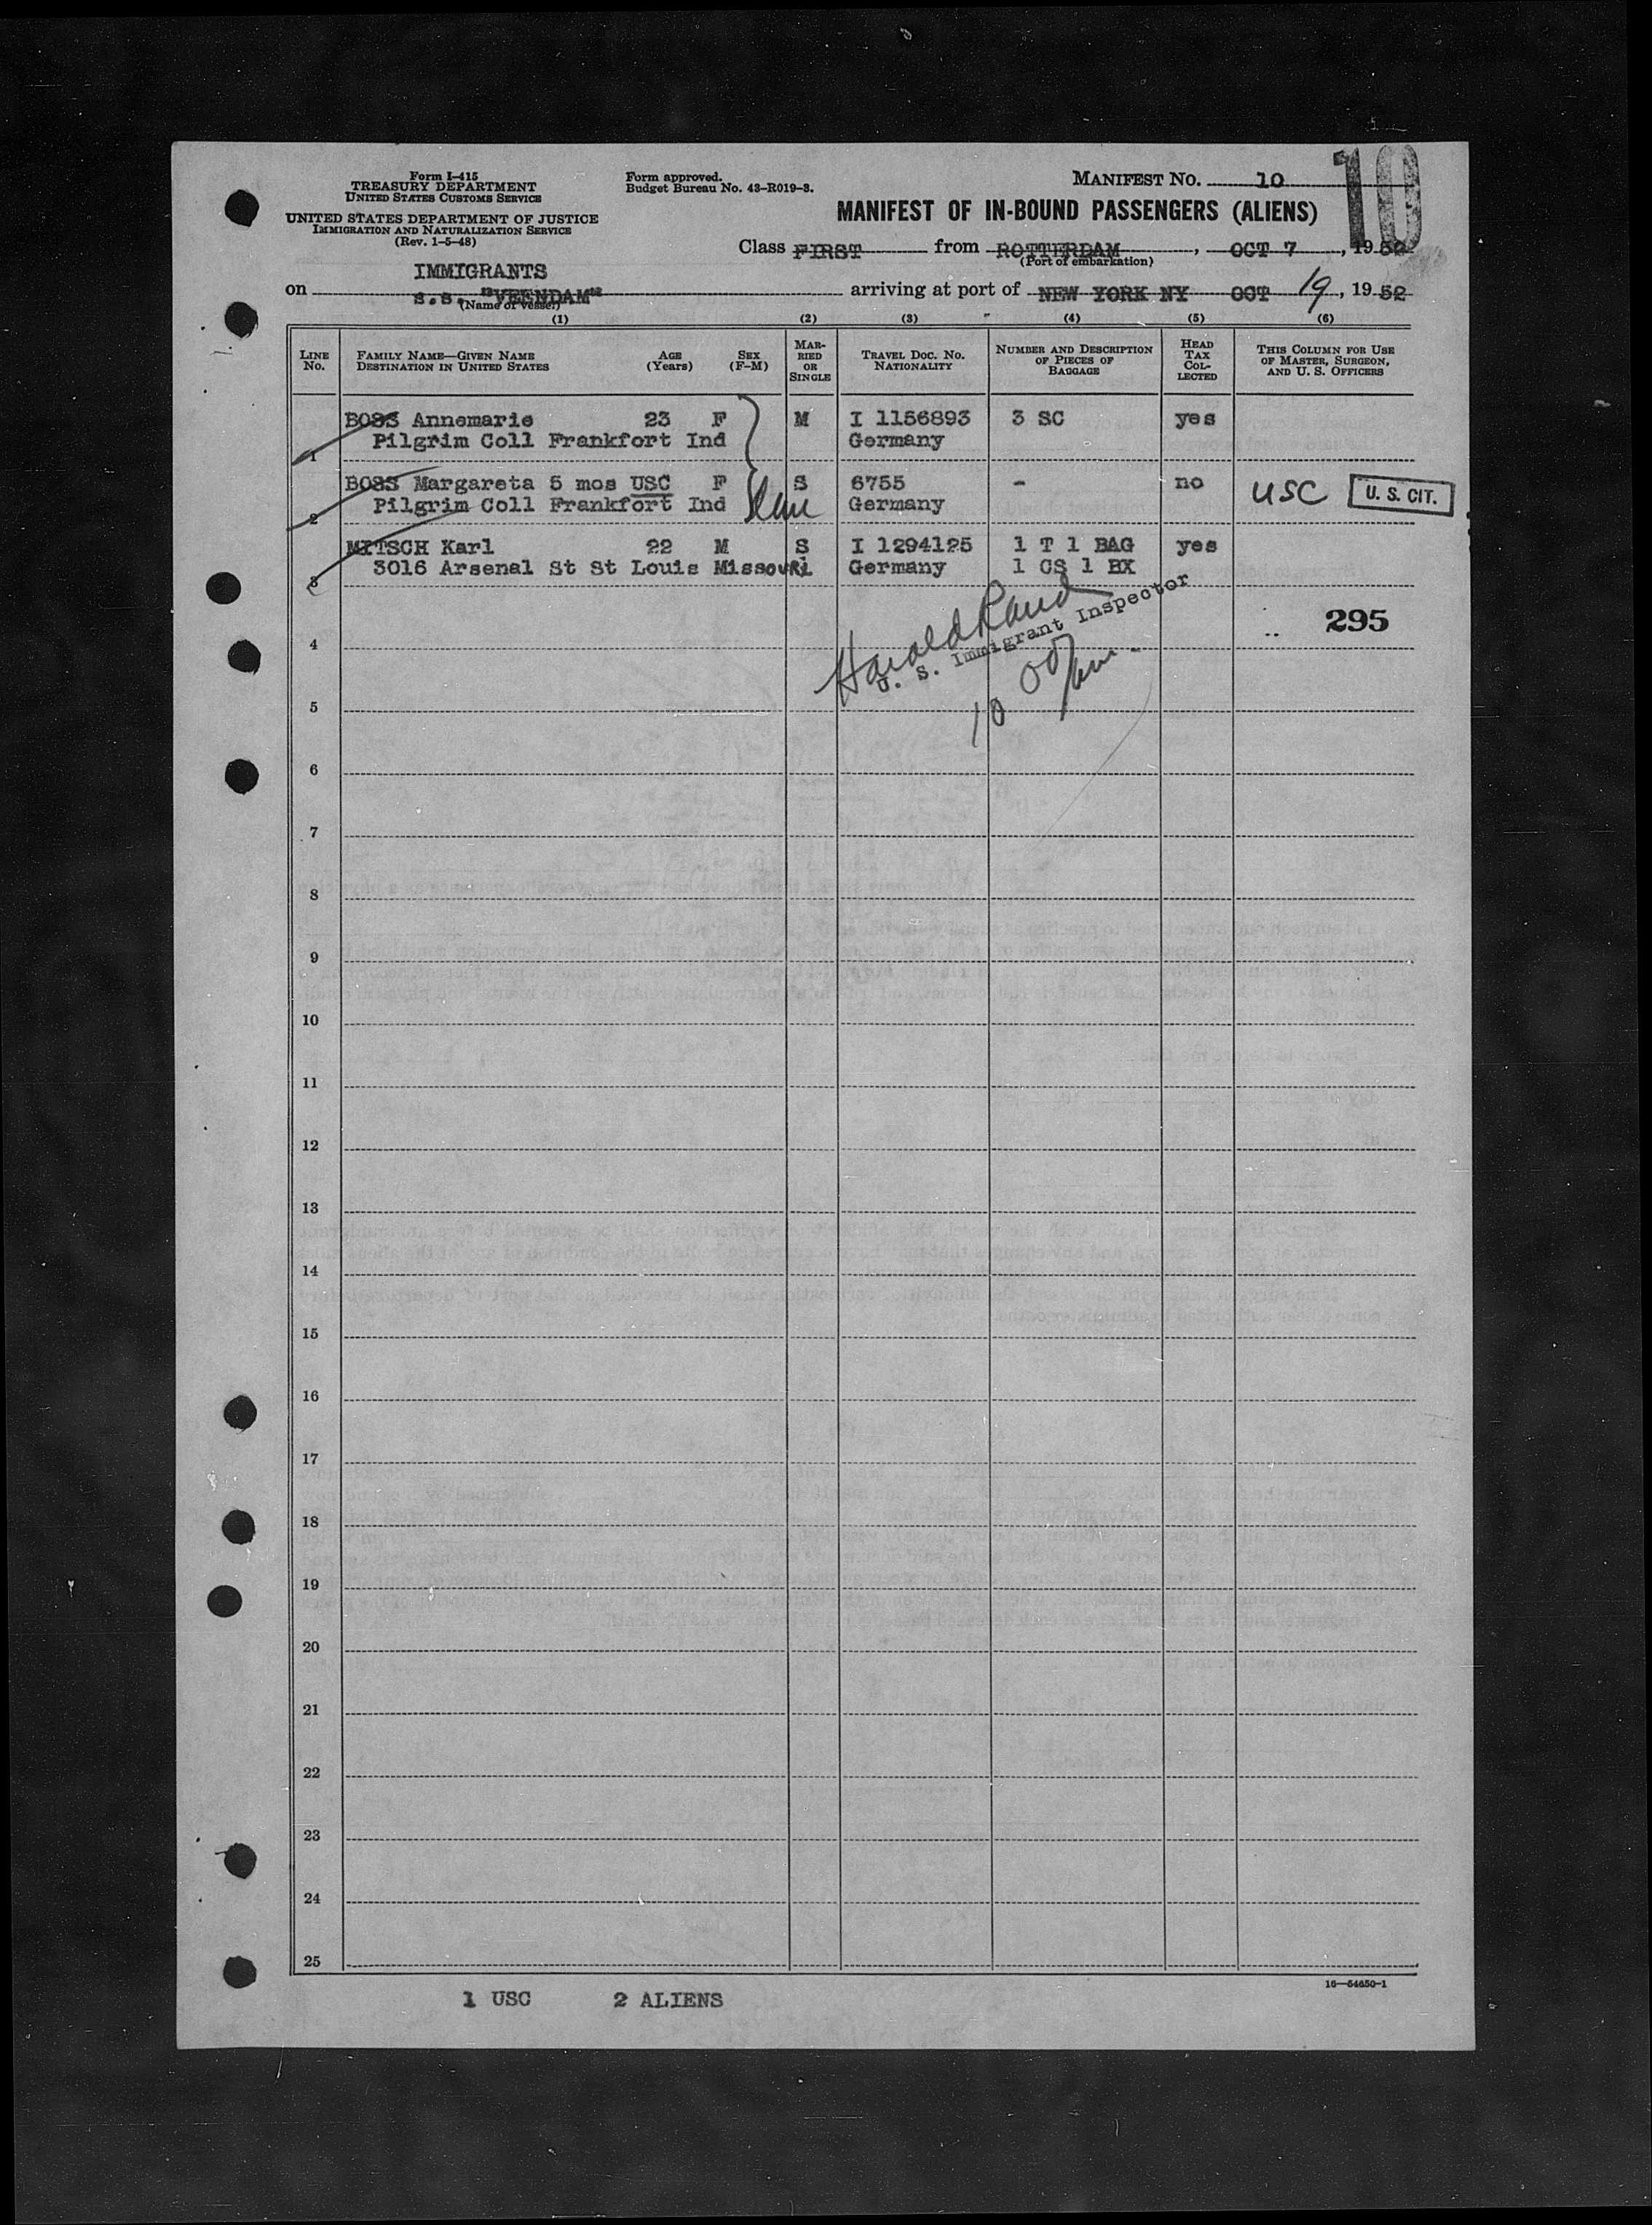 Form I-415
TREASURY DEPARTMENT
UNITED STATES CUSTOMS SERVICE
UNITED STATES DEPARTMENT OF JUSTICE
IMMIGRATION AND NATURALIZATION SERVICE
(Rev. 1-5-48)
Form approved.
Budget Bureau No. 43-R019-3.
MANIFEST NO. 10
10
MANIFEST OF IN-BOUND PASSENGERS (ALIENS)
Class FIRST from ROTTERDAM, OCT 7, 1952
(Port of embarkation)
IMMIGRANTS
on s.s. "VEENDAM" arriving at port of NEW YORK NY OCT 19, 1952
(Name of vessel)
(1) (2) (3) (4) (5) (6)
LINE No. FAMILY NAME—GIVEN NAME DESTINATION IN UNITED STATES AGE (Years) SEX (F-M) MARRIED OR SINGLE TRAVEL DOC. NO. NATIONALITY NUMBER AND DESCRIPTION OF PIECES OF BAGGAGE HEAD TAX COLLECTED THIS COLUMN FOR USE OF MASTER, SURGEON, AND U. S. OFFICERS
BOSS Annemarie 23 F M I 1156893 3 SC yes
1 Pilgrim Coll Frankfort Ind Germany
BOSS Margareta 5 mos USC F S 6755 - no USC U. S. CIT.
2 Pilgrim Coll Frankfort Ind Germany
MITSCH Karl 22 M S I 1294125 1 T 1 BAG yes
3 3016 Arsenal St St Louis Missouri Germany 1 CS 1 BX
Harold Rand
U. S. Immigrant Inspector
10 00
295
4
5
6
7
8
9
10
11
12
13
14
15
16
17
18
19
20
21
22
23
24
25
16—54650-1
1 USC 2 ALIENS